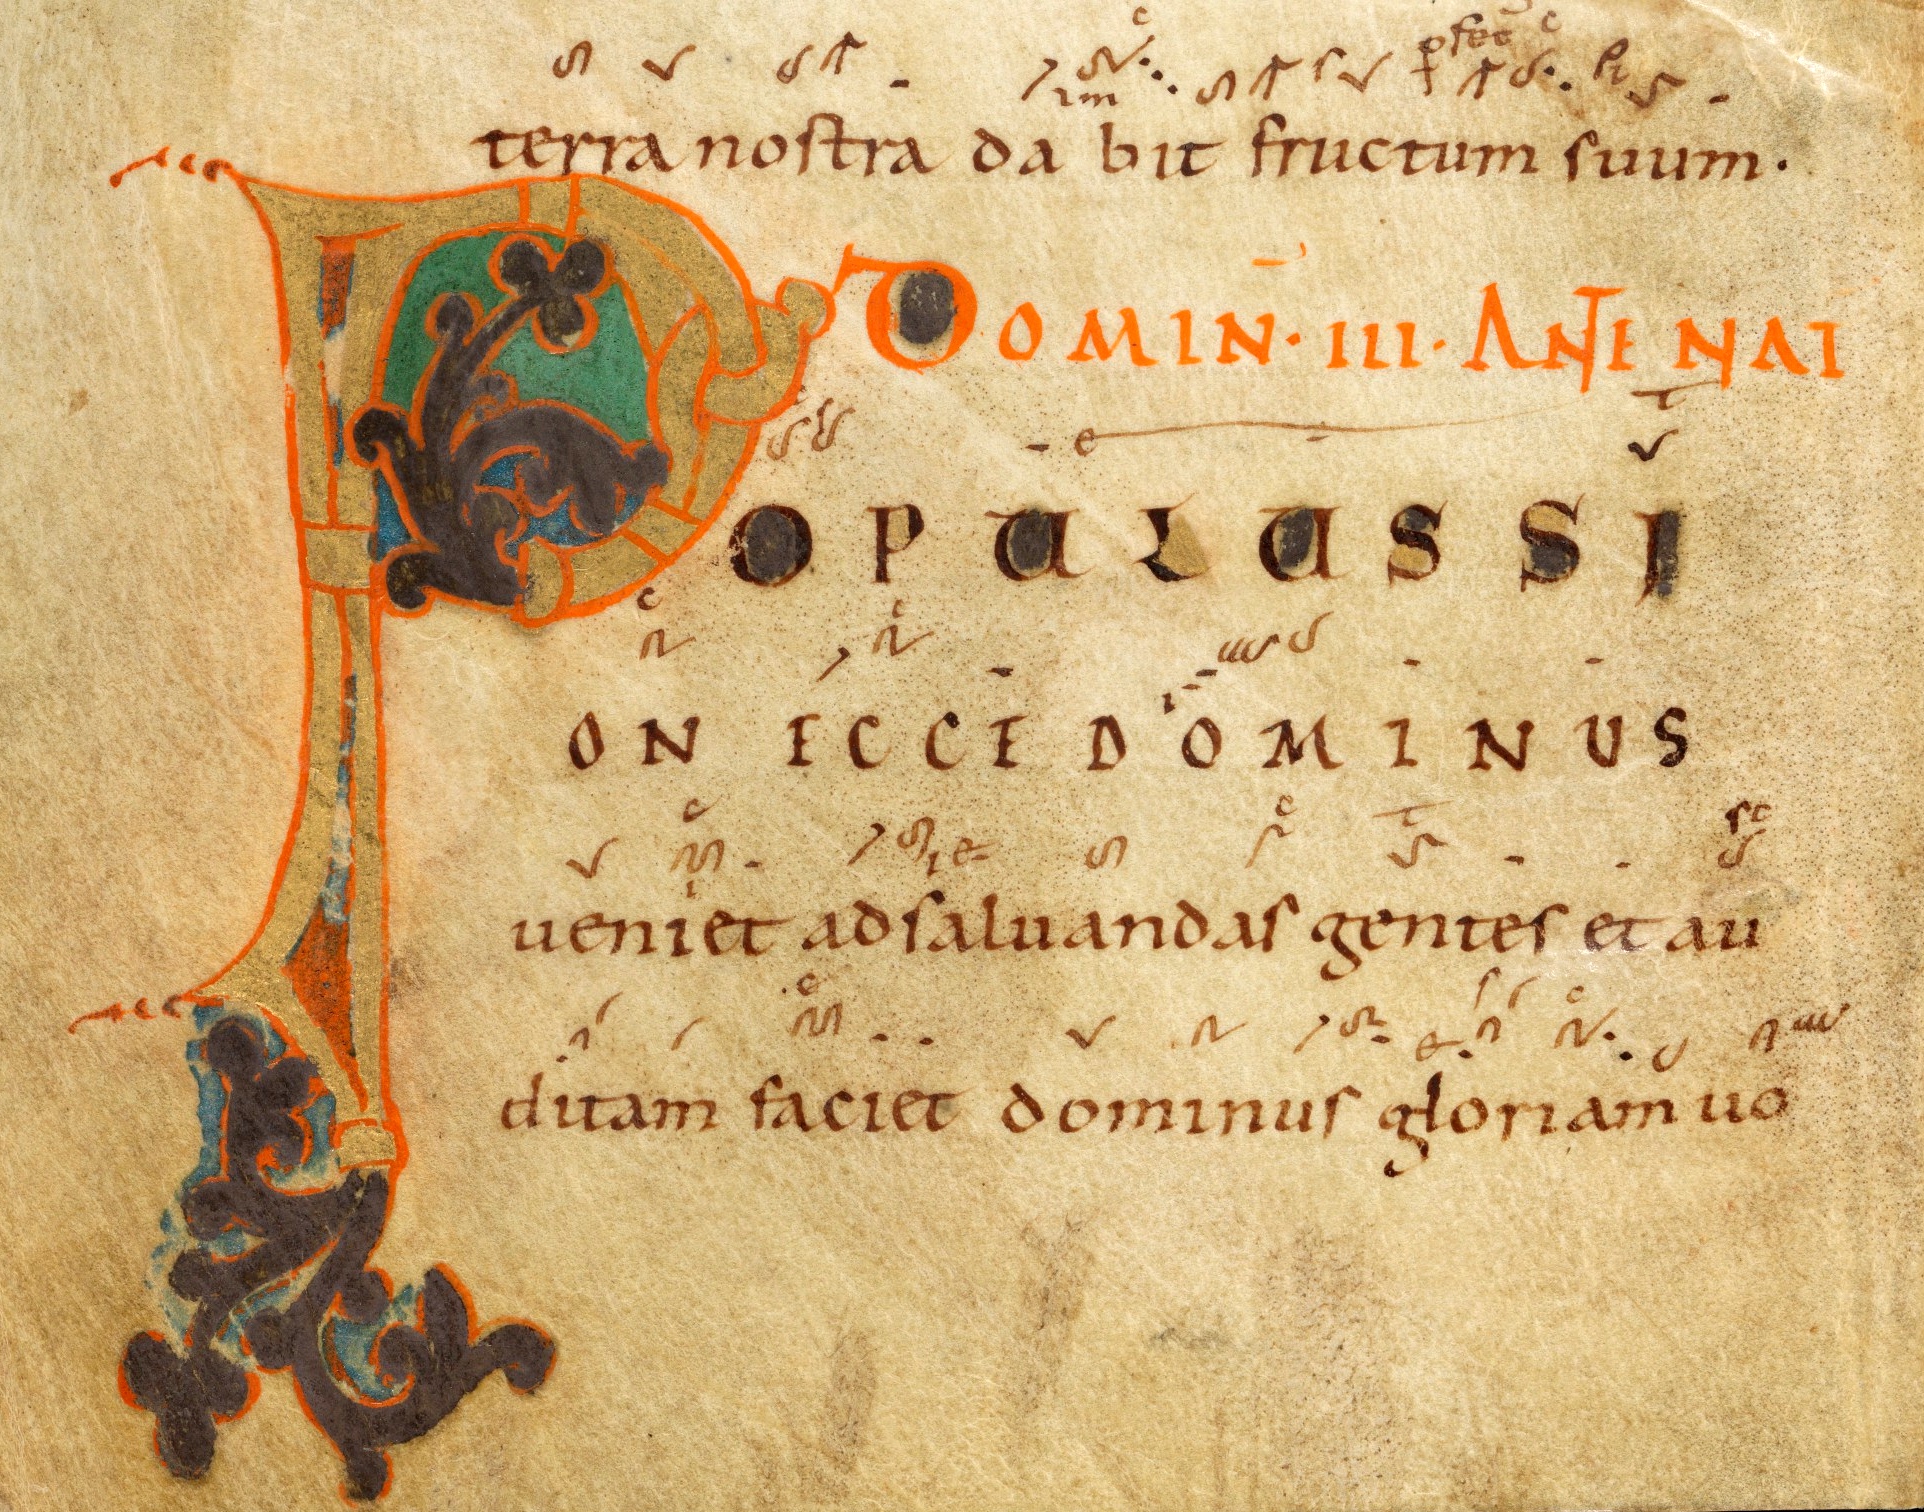 terra nostra da bit fructum suum.
DOMIN̄· III· ANTE NAT
POPULUS SI
ON ECCE DOMINUS
ueniet ad saluandas gentes et au
ditam faciet dominus gloriam uo